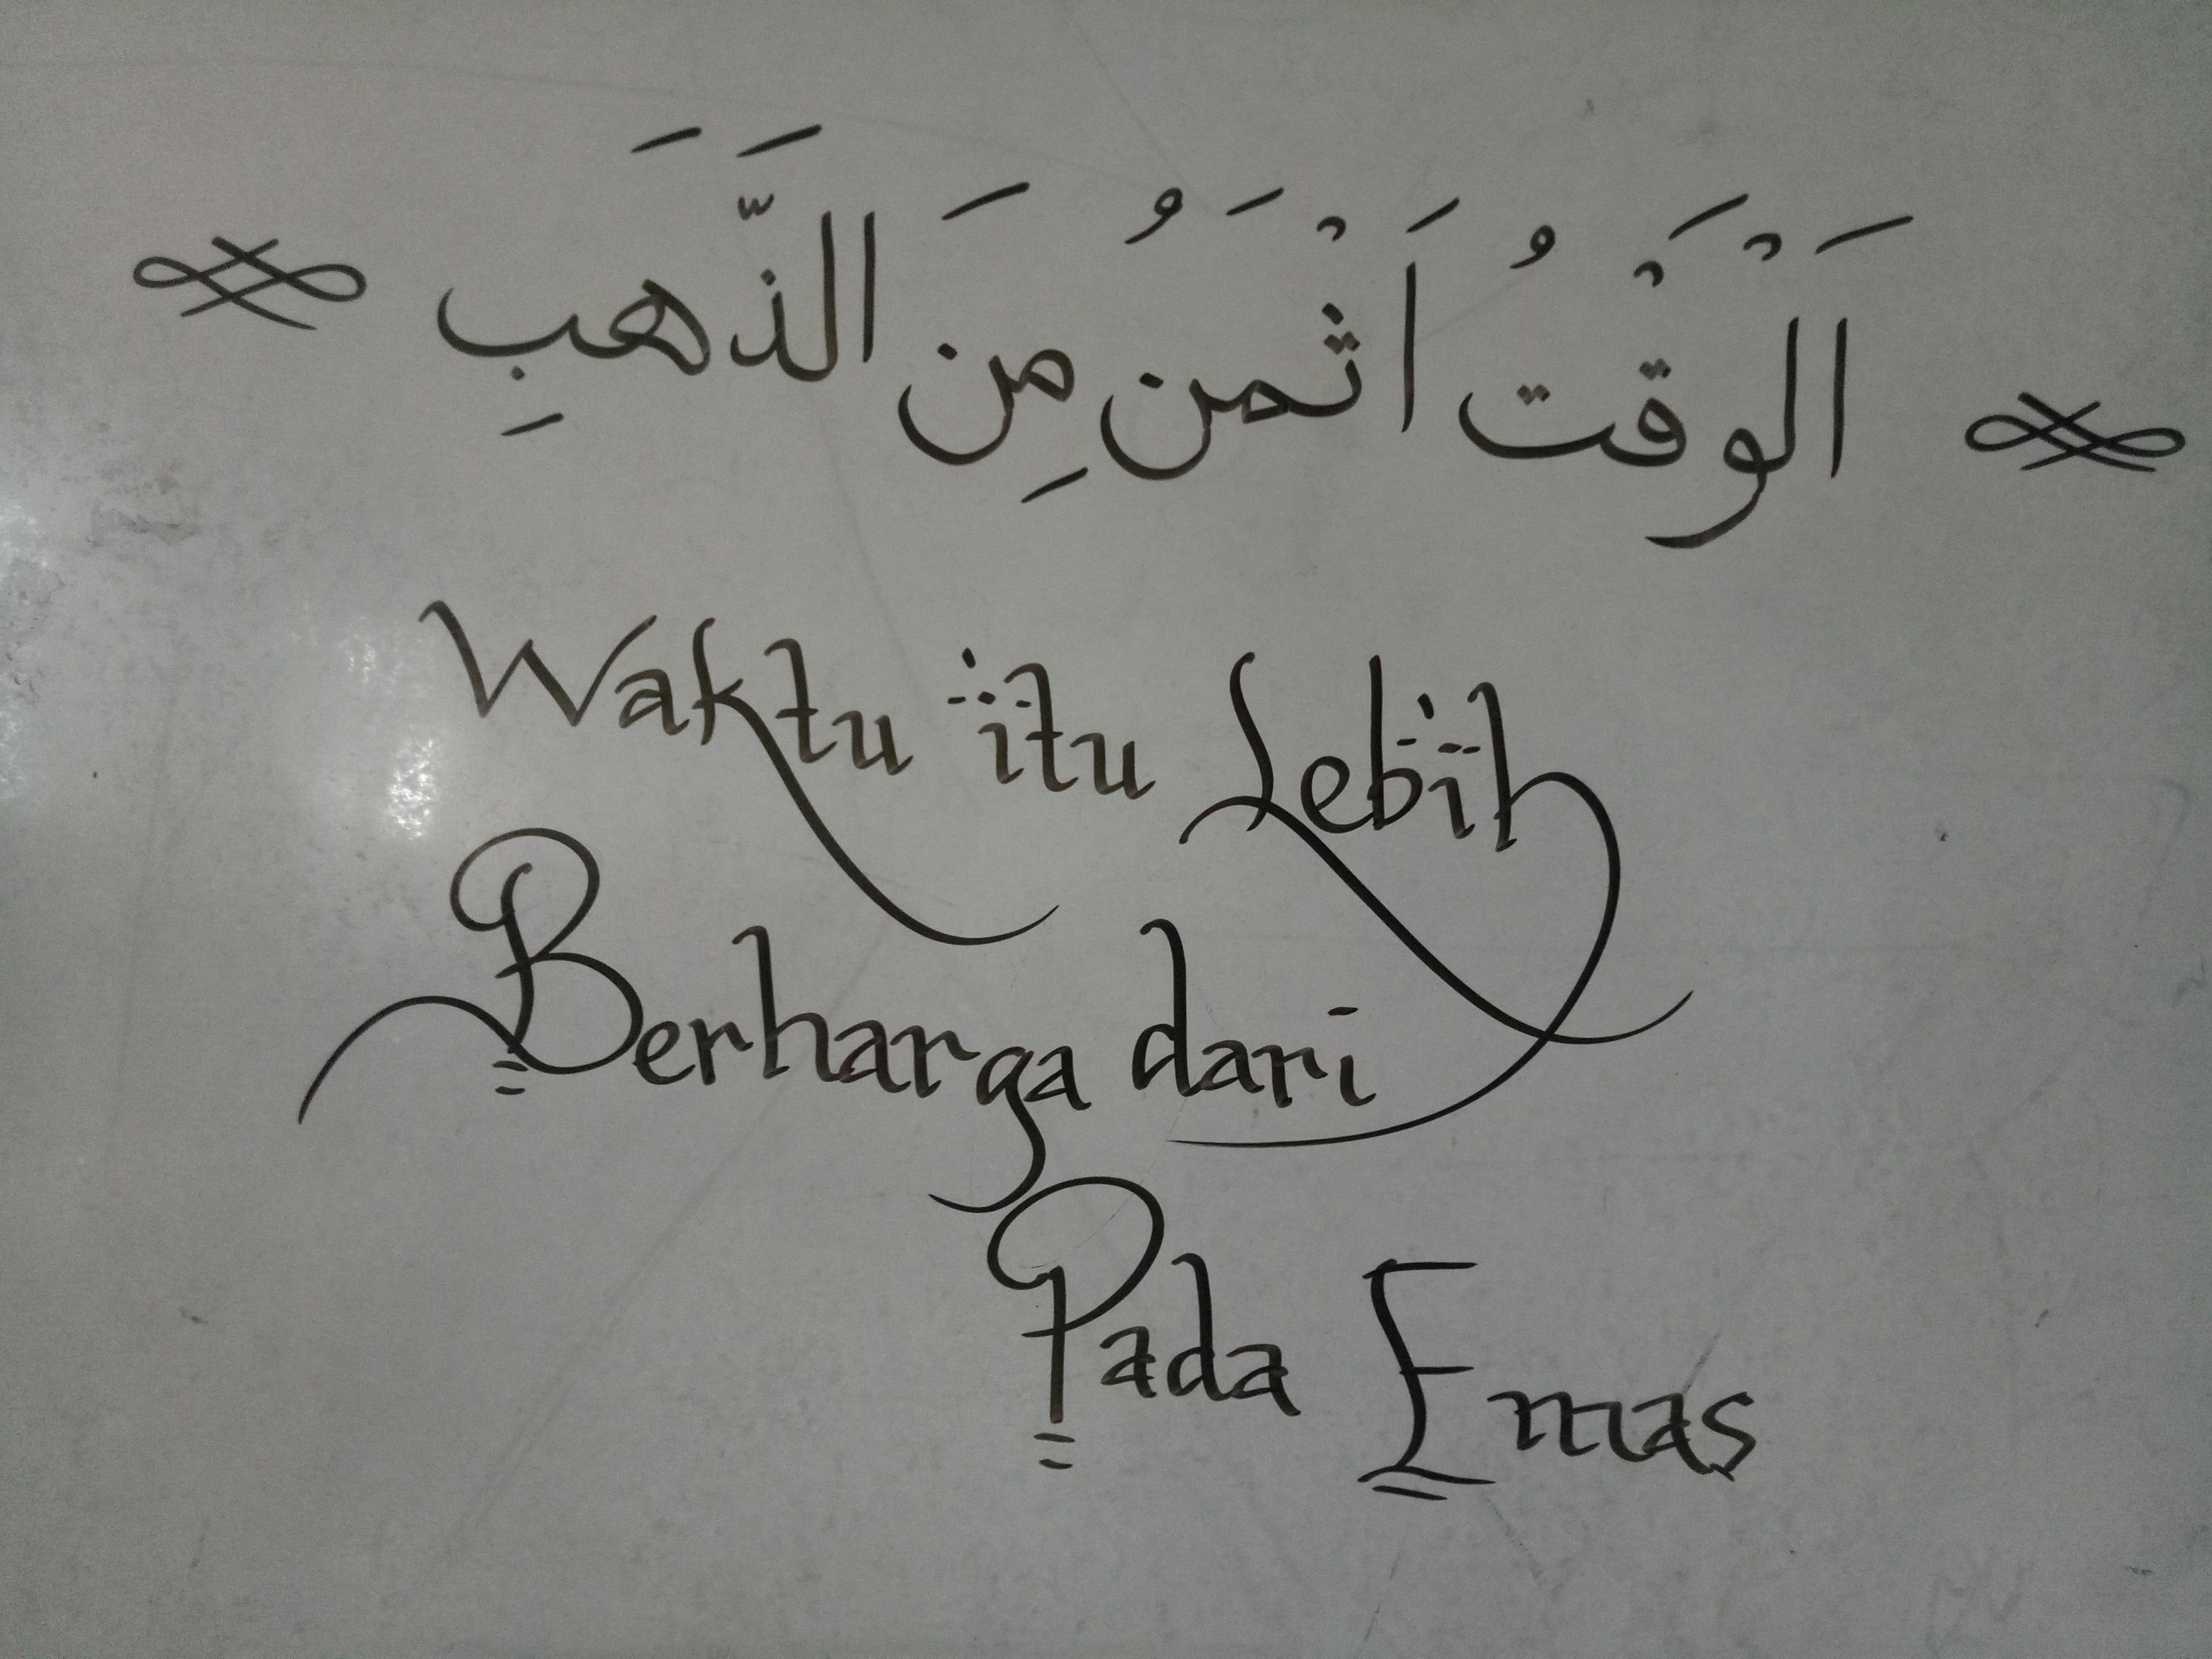 اَلْوَقْتُ اَثْمَنُ مِنَ الذَّهَبِ
Waktu itu Lebih
Berharga dari
Pada Emas